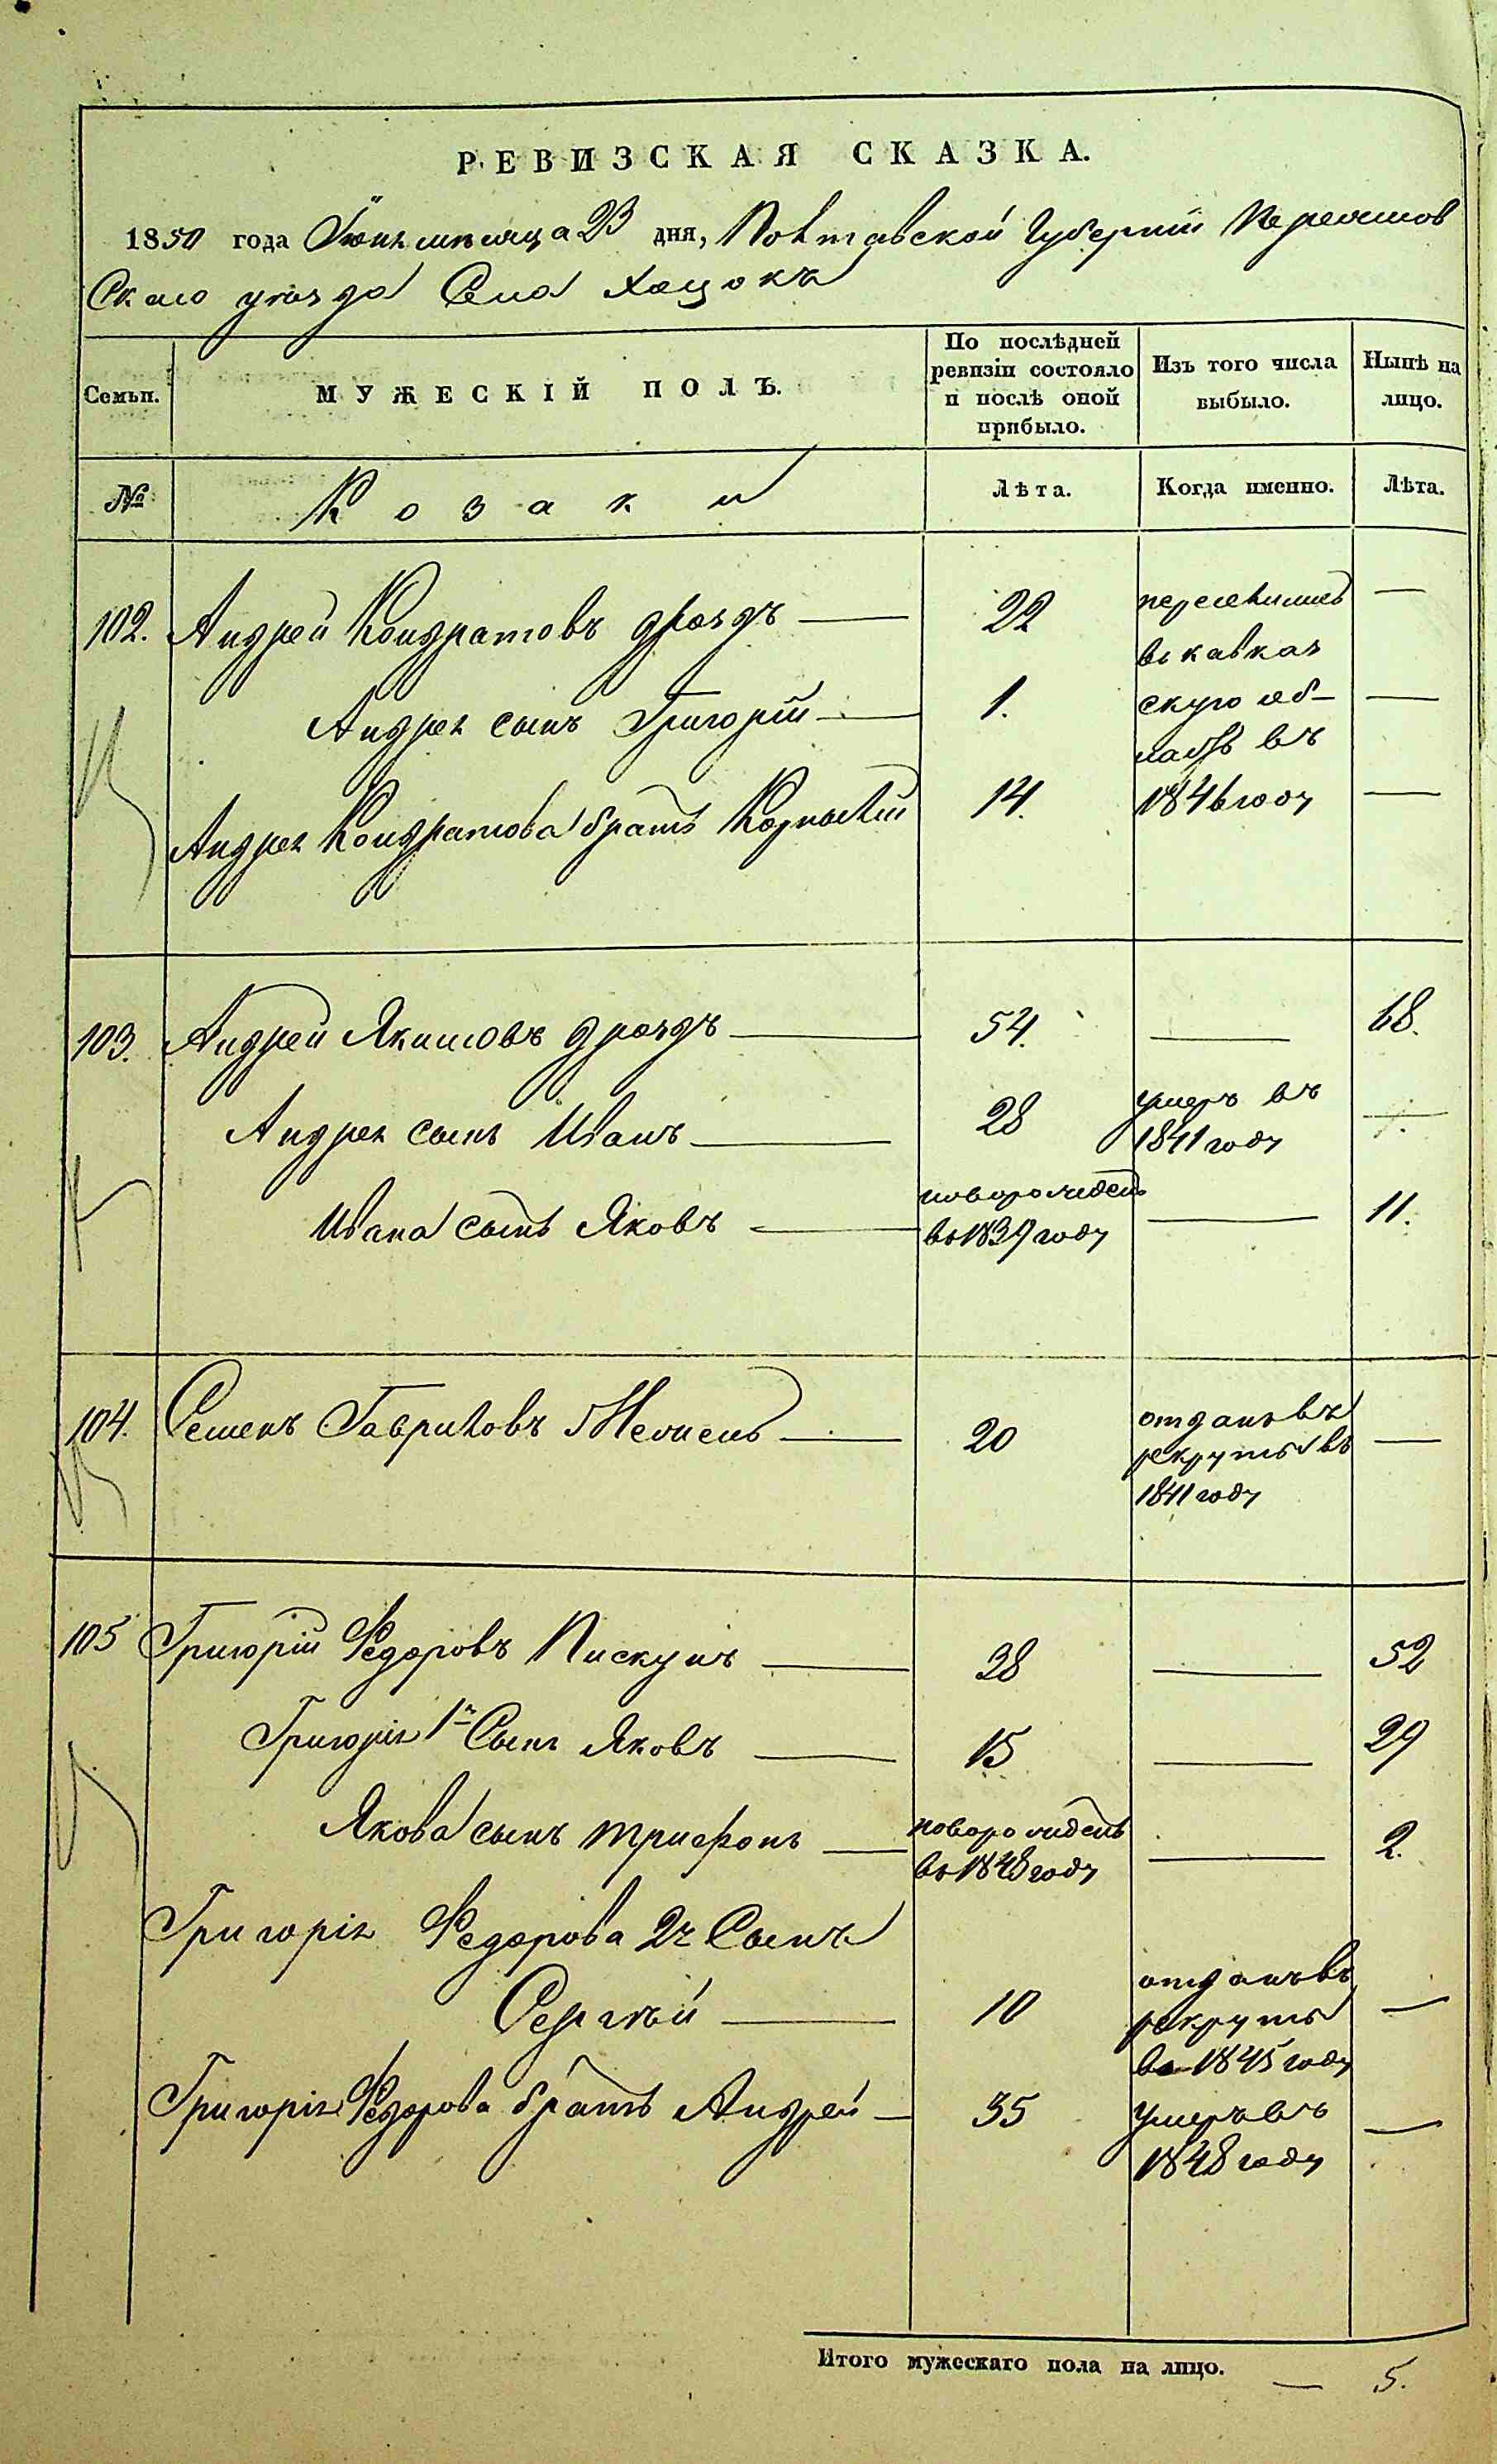 РЕВИЗСКАЯ СКАЗКА.
1850 года Іюнь месяца 23 дня, Полтавской Губерніи Переяслов
скаго уѣзда Села Хоцокъ
Семьи.
МУЖЕСКІЙ ПОЛЪ.
По послѣдней ревизіи состояло и послѣ оной прибыло.
Изъ того числа выбыло.
Нынѣ на лицо.
№
Козаки
Лѣта.
Когда именно.
Лѣта.
102. Андрей Кондратовъ Дроздъ — 22 переселились —
въ кавказ
Андрея сынъ Григорій — 1. скую об- —
ласть въ
Андрея Кондратова братъ Корнелій 14. 1846 году —
103. Андрей Якимовъ Дроздъ — 54. — 68.
Андрея сынъ Иванъ — 28 умеръ въ —
1841 году
Ивана сынъ Яковъ — новорожденъ — 11.
въ 1839 году
104. Семенъ Гавриловъ — 20 отданъ въ —
рекруты въ
1841 году
105 Григорій Федоровъ Пискунъ — 38 — 52
Григорія 1й Сынъ Яковъ — 15 — 29
Якова сынъ Трифонъ — новорожденъ — 2.
въ 1848 году
Григорія Федорова 2й Сынъ
Сергѣй — 10 отданъ въ —
рекруты
въ 1845 году
Григорія Федорова братъ Андрей — 35 умеръ въ —
1848 году
Итого мужескаго пола на лицо. — 5.